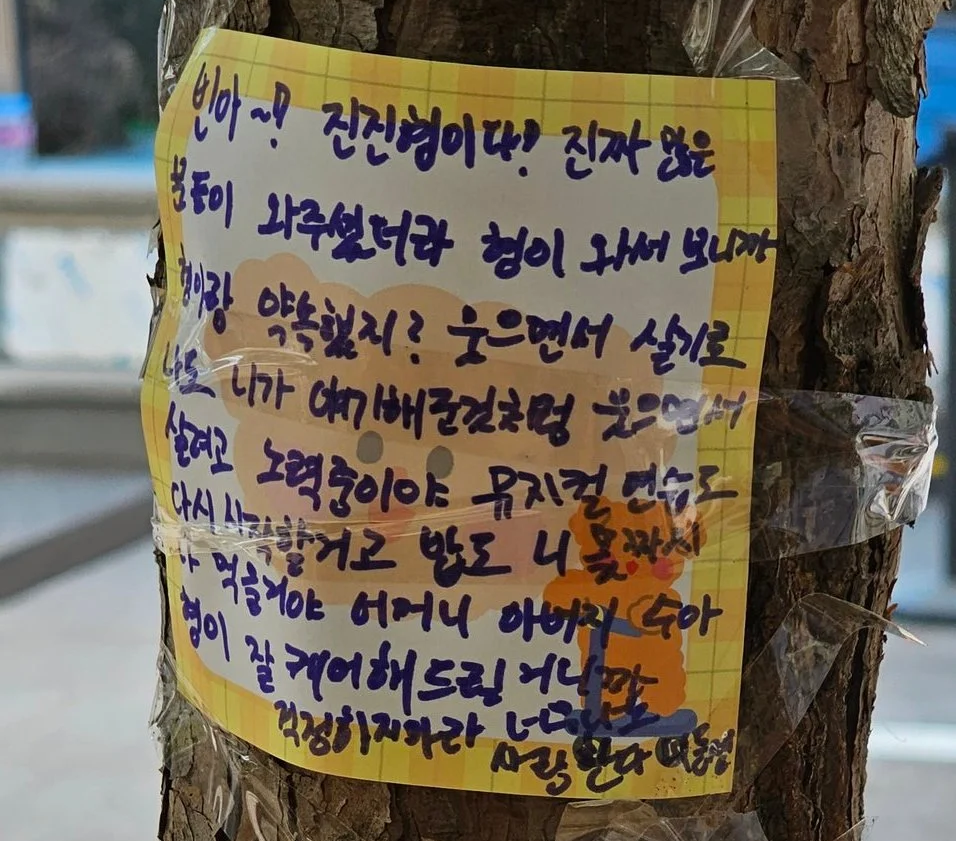 빈아~! 진진형이다! 진짜 많은
분들이 와주셨더라 형이 와서 보니까
형이랑 약속했지? 웃으면서 살기로
나도 니가 얘기해준것처럼 웃으면서
살려고 노력중이야 뮤지컬 연습도
다시 시작할거고 밥도 니 몫까지
다 먹을거야 어머니 아버지 수아
형이 잘 케어해드릴거니까
걱정하지마라 너무나도
사랑한다